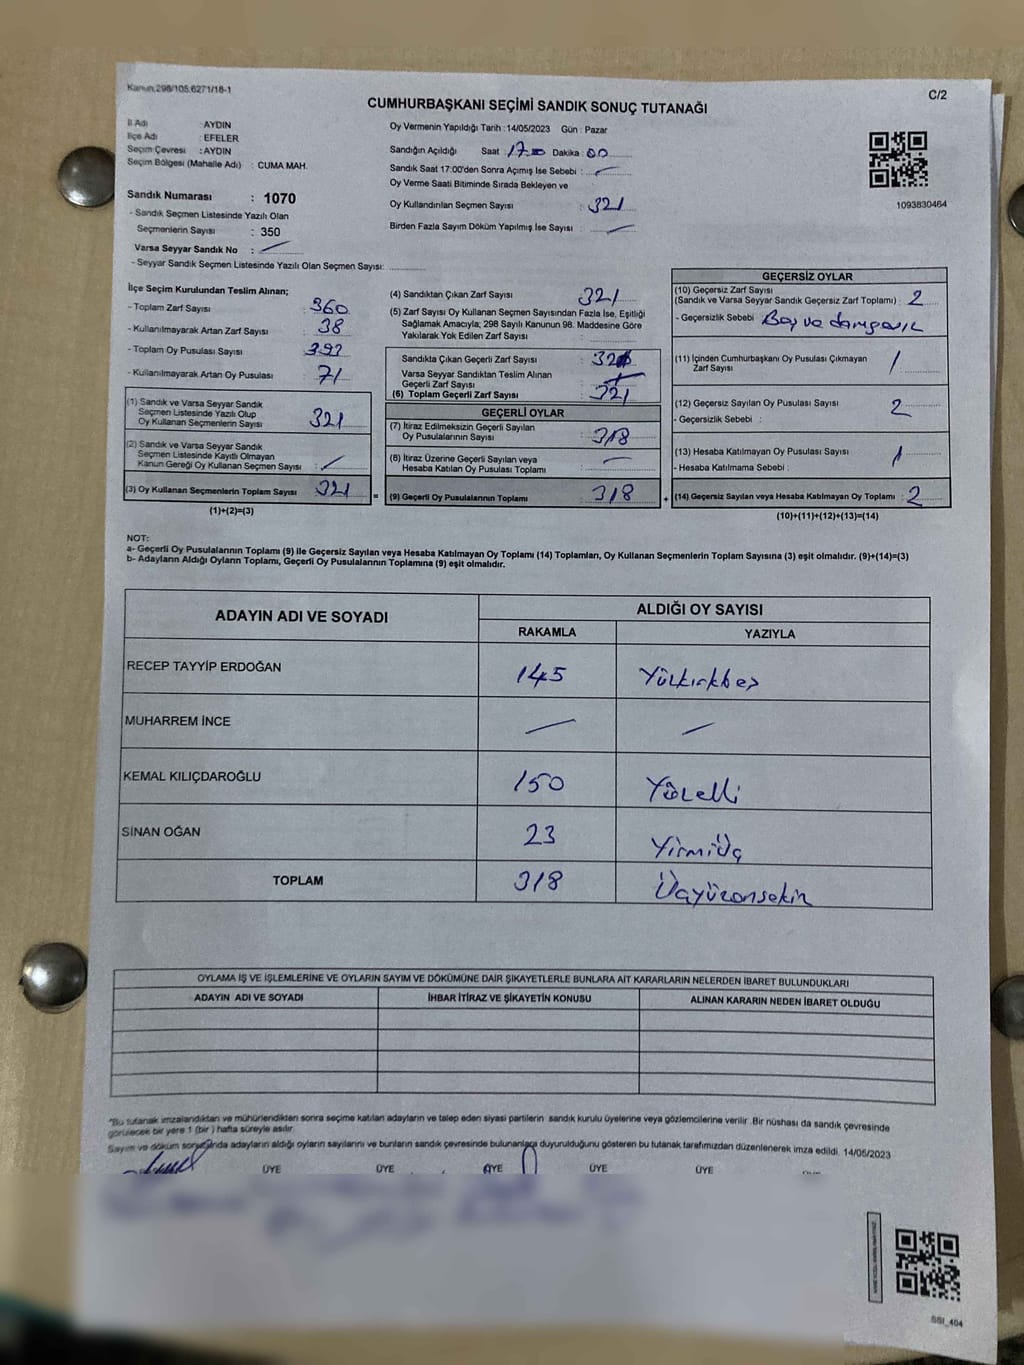 Kanun;298/105,6271/18-1
C/2
CUMHURBAŞKANI SEÇİMİ SANDIK SONUÇ TUTANAĞI
İl Adı : AYDIN
İlçe Adı : EFELER
Seçim Çevresi : AYDIN
Seçim Bölgesi (Mahalle Adı) : CUMA MAH.
Sandık Numarası : 1070
- Sandık Seçmen Listesinde Yazılı Olan
Seçmenlerin Sayısı : 350
Varsa Seyyar Sandık No :
- Seyyar Sandık Seçmen Listesinde Yazılı Olan Seçmen Sayısı:
Oy Vermenin Yapıldığı Tarih :14/05/2023 Gün : Pazar
Sandığın Açıldığı Saat Dakika 00
Sandık Saat 17:00'den Sonra Açımış İse Sebebi :
Oy Verme Saati Bitiminde Sırada Bekleyen ve
Oy Kullandırılan Seçmen Sayısı : 321
Birden Fazla Sayım Döküm Yapılmış İse Sayısı :
1093830464
İlçe Seçim Kurulundan Teslim Alınan;
- Toplam Zarf Sayısı : 360
- Kullanılmayarak Artan Zarf Sayısı : 38
- Toplam Oy Pusulası Sayısı
- Kullanılmayarak Artan Oy Pusulası : 71
(1) Sandık ve Varsa Seyyar Sandık
Seçmen Listesinde Yazılı Olup
Oy Kullanan Seçmenlerin Sayısı : 321
(2) Sandık ve Varsa Seyyar Sandık
Seçmen Listesinde Kayıtlı Olmayan
Kanun Gereği Oy Kullanan Seçmen Sayısı :
(3) Oy Kullanan Seçmenlerin Toplam Sayısı 321
(1)+(2)=(3)
=
(4) Sandıktan Çıkan Zarf Sayısı : 321
(5) Zarf Sayısı Oy Kullanan Seçmen Sayısından Fazla İse, Eşitliği
Sağlamak Amacıyla; 298 Sayılı Kanunun 98. Maddesine Göre
Yakılarak Yok Edilen Zarf Sayısı :
Sandıkta Çıkan Geçerli Zarf Sayısı :
Varsa Seyyar Sandıktan Teslim Alınan
Geçerli Zarf Sayısı :
(6) Toplam Geçerli Zarf Sayısı : 321
GEÇERLİ OYLAR
(7) İtiraz Edilmeksizin Geçerli Sayılan
Oy Pusulalarının Sayısı : 318
(8) İtiraz Üzerine Geçerli Sayılan veya
Hesaba Katılan Oy Pusulası Toplamı :
(9) Geçerli Oy Pusulalarının Toplamı : 318
+
GEÇERSİZ OYLAR
(10) Geçersiz Zarf Sayısı
(Sandık ve Varsa Seyyar Sandık Geçersiz Zarf Toplamı) : 2
- Geçersizlik Sebebi :
(11) İçinden Cumhurbaşkanı Oy Pusulası Çıkmayan
Zarf Sayısı :
(12) Geçersiz Sayılan Oy Pusulası Sayısı : 2
- Geçersizlik Sebebi :
(13) Hesaba Katılmayan Oy Pusulası Sayısı :
- Hesaba Katılmama Sebebi :
(14) Geçersiz Sayılan veya Hesaba Katılmayan Oy Toplamı : 2
(10)+(11)+(12)+(13)=(14)
NOT:
a- Geçerli Oy Pusulalarının Toplamı (9) ile Geçersiz Sayılan veya Hesaba Katılmayan Oy Toplamı (14) Toplamları, Oy Kullanan Seçmenlerin Toplam Sayısına (3) eşit olmalıdır. (9)+(14)=(3)
b- Adayların Aldığı Oyların Toplamı, Geçerli Oy Pusulalarının Toplamına (9) eşit olmalıdır.
ADAYIN ADI VE SOYADI
ALDIĞI OY SAYISI
RAKAMLA YAZIYLA
RECEP TAYYİP ERDOĞAN 145 Yüzkırkbeş
MUHARREM İNCE
KEMAL KILIÇDAROĞLU 150 Yüzelli
SİNAN OĞAN 23 Yirmiüç
TOPLAM 318 Üçyüzonsekiz
OYLAMA İŞ VE İŞLEMLERİNE VE OYLARIN SAYIM VE DÖKÜMÜNE DAİR ŞİKAYETLERLE BUNLARA AİT KARARLARIN NELERDEN İBARET BULUNDUKLARI
ADAYIN ADI VE SOYADI İHBAR İTİRAZ VE ŞİKAYETİN KONUSU ALINAN KARARIN NEDEN İBARET OLDUĞU
*Bu tutanak imzalandıktan ve mühürlendikten sonra seçime katılan adayların ve talep eden siyasi partilerin sandık kurulu üyelerine veya gözlemcilerine verilir. Bir nüshası da sandık çevresinde
görülecek bir yere 1 (bir ) hafta süreyle asılır.
Sayım ve döküm sonucunda adayların aldığı oyların sayılarını ve bunların sandık çevresinde bulunanlara duyurulduğunu gösteren bu tutanak tarafımızdan düzenlenerek imza edildi. 14/05/2023
ÜYE ÜYE ÜYE ÜYE ÜYE
SSI_404